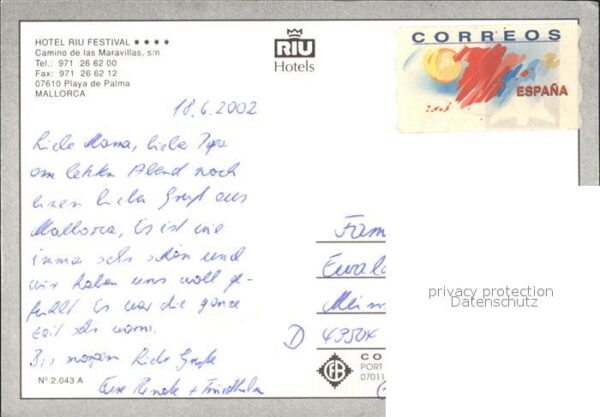 HOTEL RIU FESTIVAL ★★★★
Camino de las Maravillas, s/n
Tel.: 971 26 62 00
Fax: 971 26 62 12
07610 Playa de Palma
MALLORCA
RIU
Hotels
CORREOS
ESPAÑA
18.6.2002
Liebe Mama, lieber Papa
am letzten Abend noch
einen lieben Gruß aus
Mallorca, Es ist wie
immer sehr schön und
wir haben uns wohl ge-
fühlt. Es war die ganze
Zeit sehr warm.
Bis morgen Liebe Grüße
Eure Renate + Friedhelm
Fam
Ewald
D 49504
privacy protection
Datenschutz
CO
PORT
07011
Nº 2.043 A